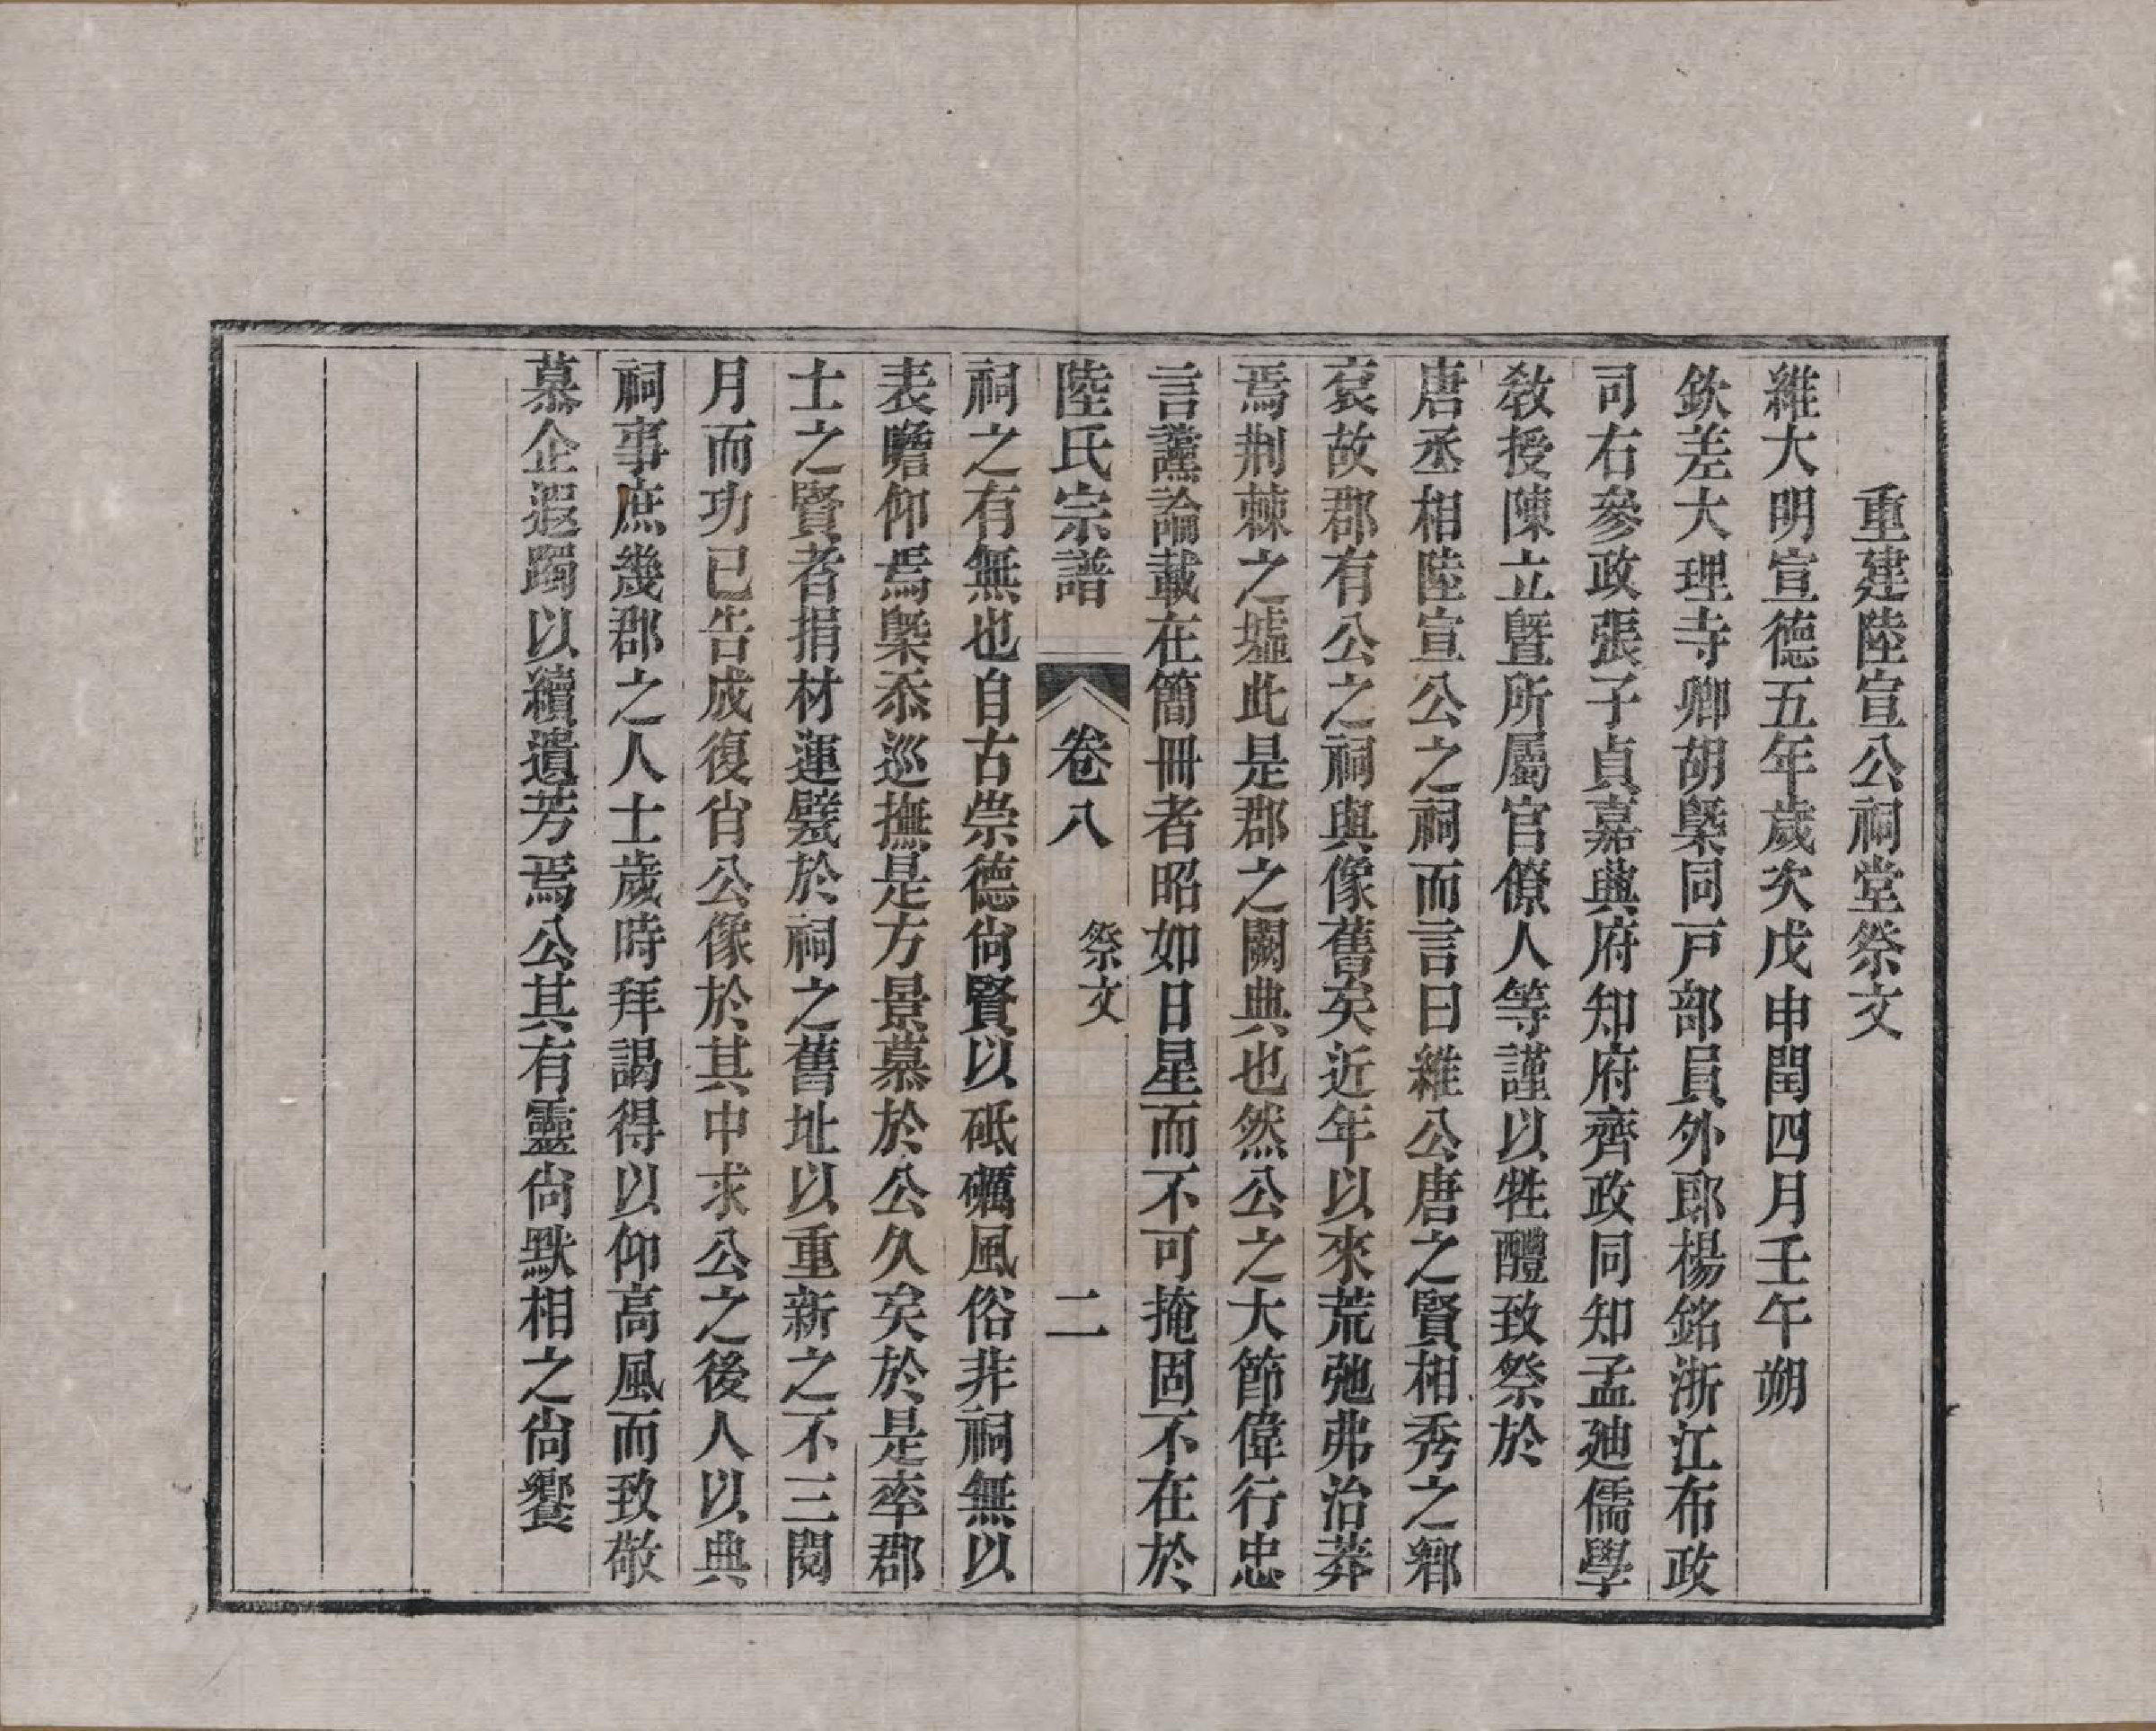 重建陸宣公祠堂祭文
維大明宣德五年歲次戊申閏四月壬午朔
欽差大理寺卿胡槩同戸部員外郎楊銘浙江布政
司右參政張子貞嘉典府知府齊政同知孟廸儒學
教授陳立暨所屬官僚人等謹以牲醴致祭於
唐丞相陸宣公之祠而言曰維公唐之賢相秀之鄕
哀故郡有公之祠與像舊矣近年以來荒弛弗治莽
焉荆棘之墟此是郡之闕典也然公之大節偉行忠
言讜論載在簡冊者昭如日星而不可掩固不在於
陸氏宗譜 卷八 祭文 二
祠之有無也自古崇德尙賢以砥礪風俗非祠無以
表瞻仰焉槩忝巡撫是方景慕於公久矣於是率郡
士之賢者捐材運甓於祠之舊址以重新之不三閱
月而功已告成復肖公像於其中求公之後人以典
祠事庶幾郡之人士歲時拜謁得以仰高風而致敬
慕企遐躅以續遺芳焉公其有靈尙默相之尙饗